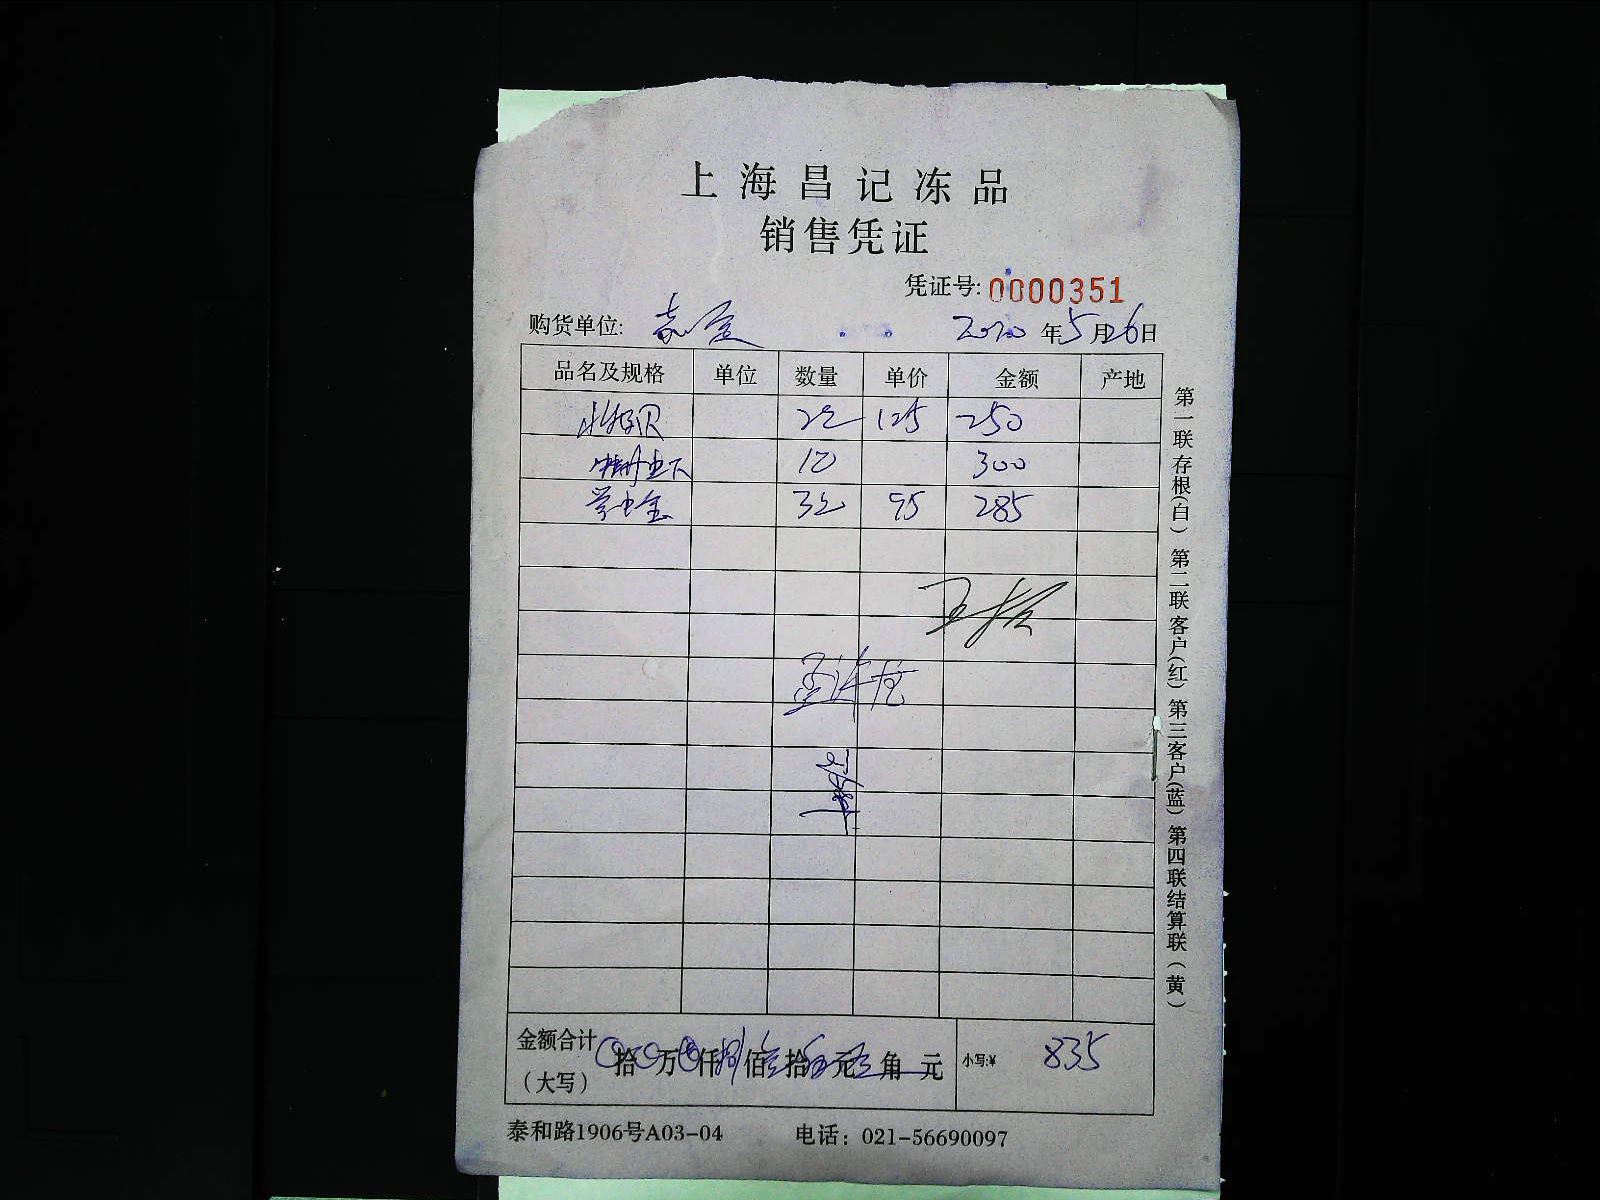 上海昌记冻品
销售凭证
凭证号: 0000351
购货单位: 2020年5月26日
品名及规格 单位 数量 单价 金额 产地
125 250
10 300
95 285
金额合计 拾 万 仟 捌佰 拾 元 角 元 小写:¥ 835
(大写)
泰和路1906号A03-04 电话: 021-56690097
第一联存根(白) 第二联客户(红) 第三客户(蓝) 第四联结算联(黄)